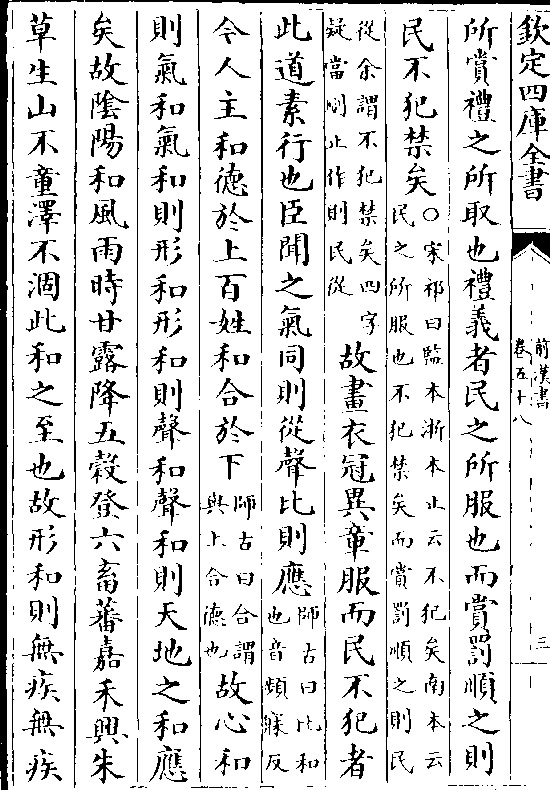 欽定四庫全書
前漢書
卷五十八
三
所賞禮之所取也禮義者民之所服也而賞罰順之則
民不犯禁矣〇宋祁曰監本浙本止云不犯矣南本云
民之所服也不犯禁矣而賞罰順之則民
從余謂不犯禁矣四字
疑當刪止作則民從
故畫衣冠異章服而民不犯者
此道素行也臣聞之氣同則從聲比則應師古曰比和
也音頻寐反
今人主和德於上百姓和合於下師古曰合謂
與上合德也
故心和
則氣和氣和則形和形和則聲和聲和則天地之和應
矣故陰陽和風雨時甘露降五穀登六畜蕃嘉禾興朱
草生山不童澤不涸此和之至也故形和則無疾無疾